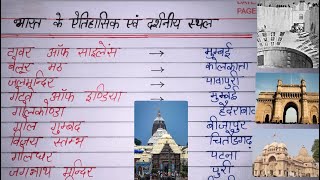 PAGE
भारत के ऐतिहासिक एवं दर्शनीय स्थल
टावर ऑफ साइलेंस → मुम्बई
बेलूर मठ → कोलकाता
जलमन्दिर → पावापुरी
गेटवे ऑफ इण्डिया → मुम्बई
गोलकोण्डा → हैदराबाद
गोल गुम्बद → बीजापुर
विजय स्तम्भ → चित्तौड़गढ़
गोलघर → पटना
जगन्नाथ मन्दिर → पुरी